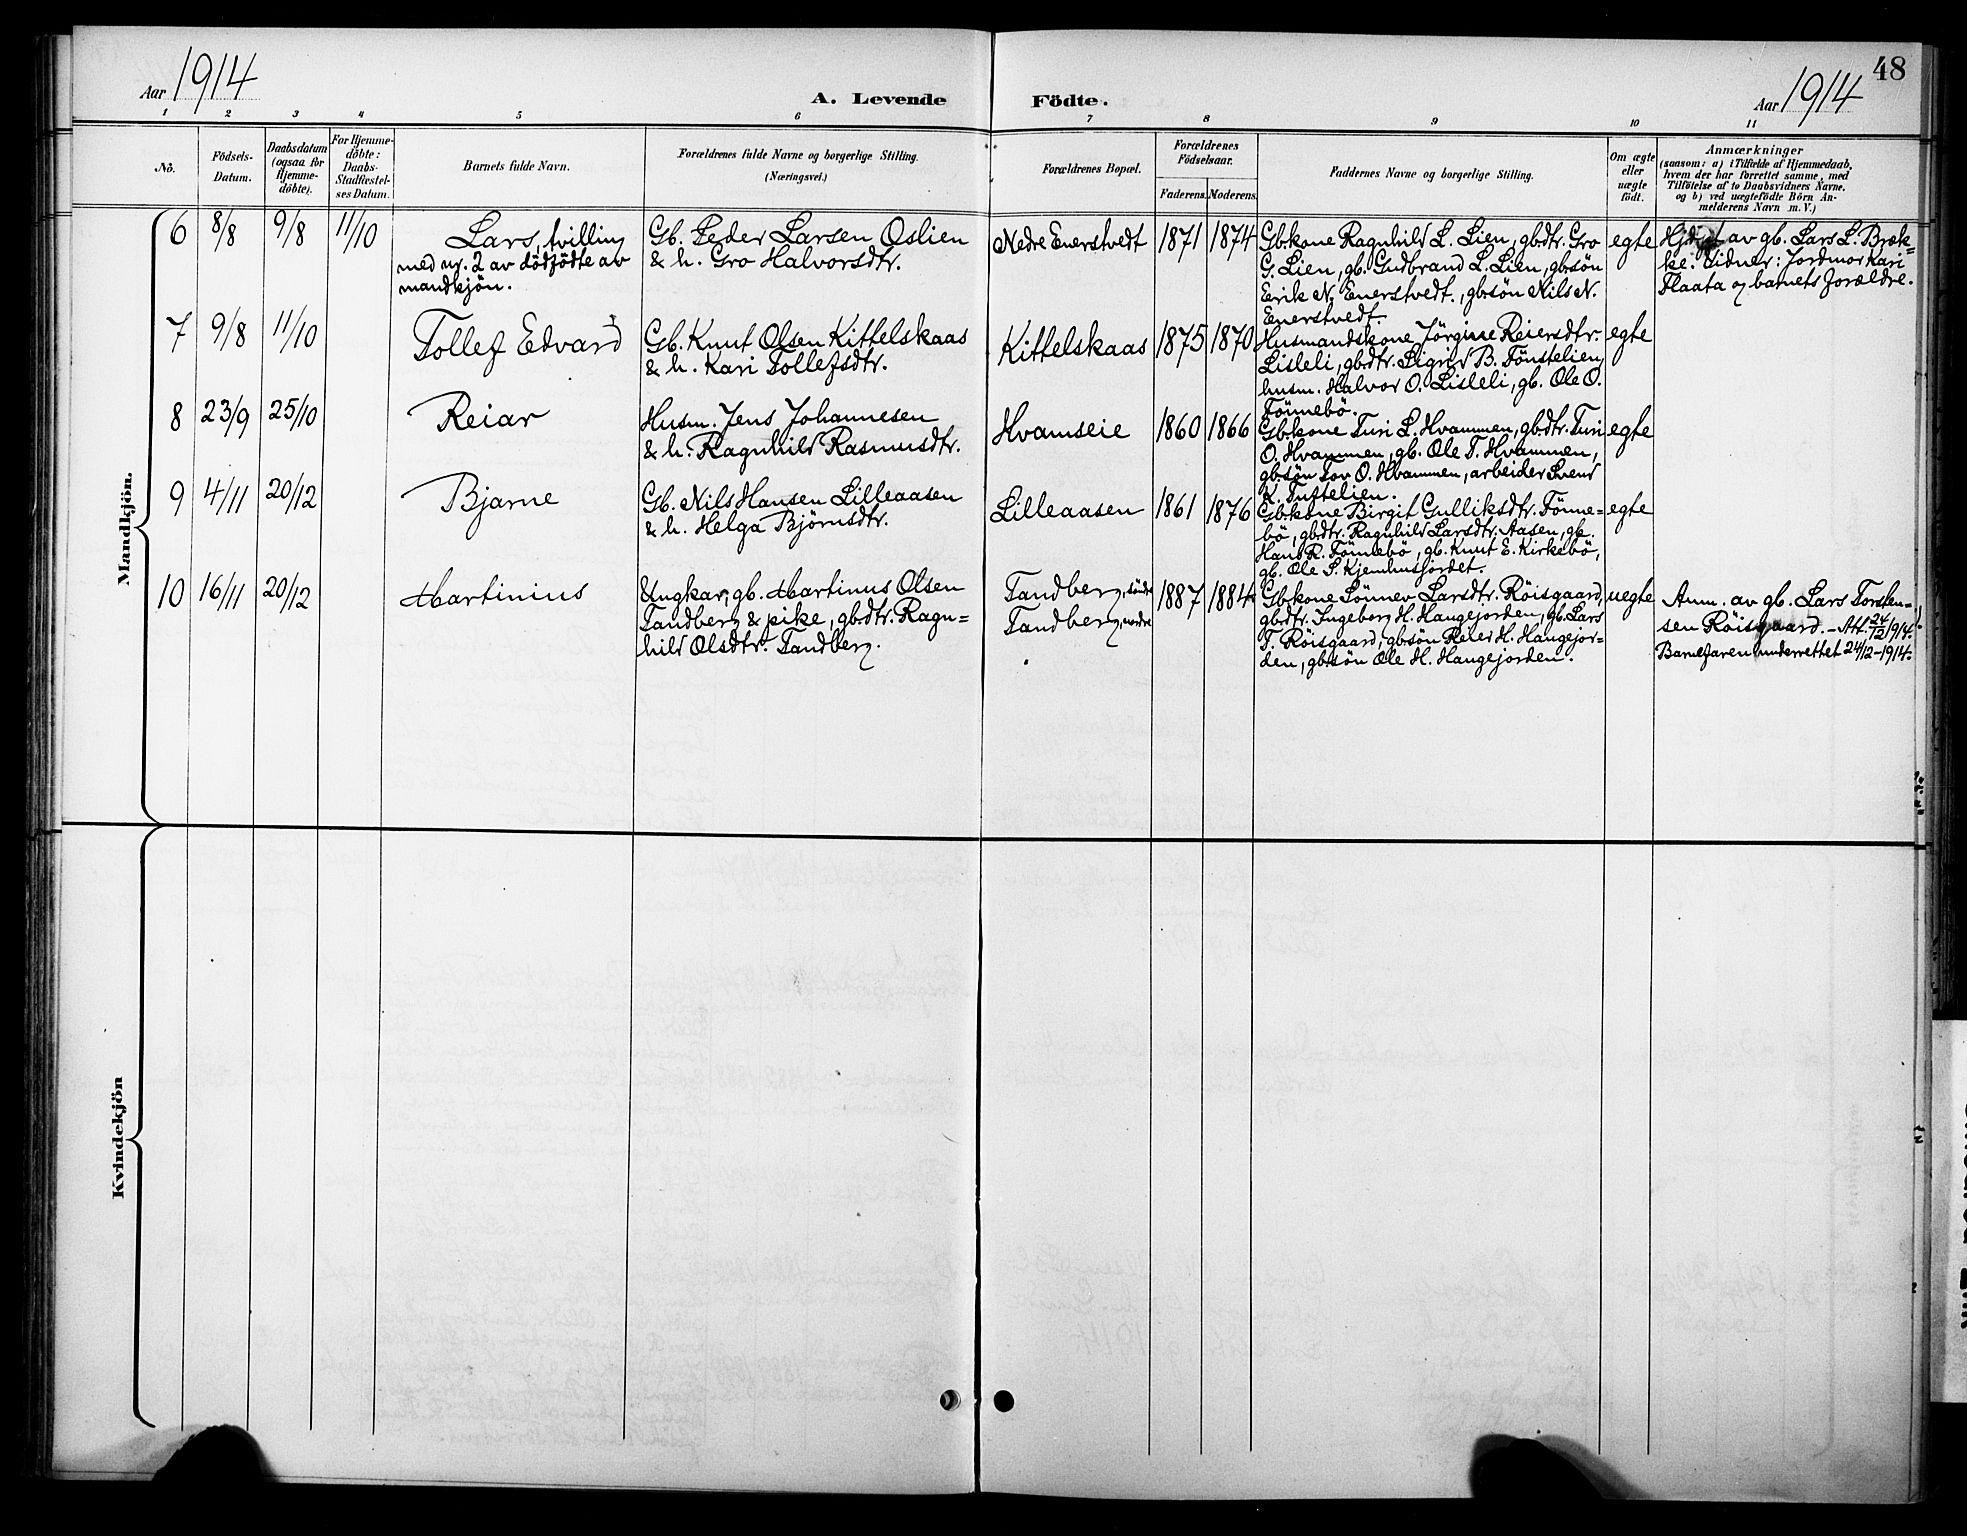 48
Aar 1914
A. Levende
Födte.
Aar 1914
1 2 3 4 5 6 7 8 9 10 11
No.
Födsels-
Datum.
Daabsdatum
(ogsaa for
Hjemme-
döbte).
For Hjemme-
döbte:
Daabs-
Stadfæstel-
ses Datum.
Barnets fulde Navn.
Forældrenes fulde Navne og borgerlige Stilling.
(Næringsvei.)
Forældrenes Bopæl.
Forældrenes
Födselsaar.
Faderens.
Moderens.
Faddernes Navne og borgerlige Stilling.
Om ægte
eller
uægte
födt.
Anmærkninger
(saasom: a) i Tilfælde af Hjemmedaab,
hvem der har forrettet samme, med
Tilföielse af to Daabsvidners Navne,
og b) ved uægtefödte Börn An-
melderens Navn m. V.)
Mandkjön.
6
8/8
9/8
11/10
Lars, tvilling
med nr. 2 av dödfödte av
mandkjön.
Gb. Peder Larsen Oslien
& h. Gro Halvorsdtr.
Nedre Enerstvedt
1871
1874
Gbkone Ragnhild L. Lien, gbdtr. Gro
G. Lien, gb. Gudbrand L. Lien, gbsön
Eirik N. Enerstvedt, gbsön Nils N.
Enerstvedt.
egte
Hjdöpt av gb. Lars L. Bræk-
ke. Vidner: Jordmor Kari
Flaata og barnets forældre.
7
9/8
11/10
Tollef Edvard
Gb. Knut Olsen Kittelskaas
& h. Kari Tollefsdtr.
Kittelskaas
1875
1870
Husmandskone Jörgine Reiersdtr.
Lisleli, gbdtr. Sigrid B. Tönstelien,
husm. Halvor O. Lisleli, gb. Ole O.
Tönnebö.
egte
8
23/9
25/10
Reiar
Husm. Jens Johannesen
& h. Ragnhild Rasmusdtr.
Hvamseie
1860
1866
Gbkone Turi L. Hvammen, gbdtr. Turi
O. Hvammen, gb. Ole T. Hvammen,
gbsön Tov O. Hvammen, arbeider Svend
K. Tuftelien.
egte
9
4/11
20/12
Bjarne
Gb. Nils Hansen Lilleaasen
& h. Helga Björnsdtr.
Lilleaasen
1861
1876
Gbkone Birgit Gulliksdtr. Tönne-
bö, gbdtr. Ragnhild Larsdtr. Aasen, gb.
Hans R. Tönnebö, gb. Knut E. Kirkebö,
gb. Ole S. Kjemhusjordet.
egte
10
16/11
20/12
Martinius
Ungkar, gb. Martinus Olsen
Tandberg & pike, gbdtr. Ragn-
hild Olsdtr. Tandberg.
Tandberg, söndre
Tandberg, nordre
1887
1884
Gbkone Sönnev Larsdtr. Röisgaard,
gbdtr. Ingeborg H. Haugejorden, gb. Lars
T. Röisgaard, gbsön Reier H. Haugejor-
den, gbsön Ole H. Haugejorden.
uegte
Anm. av gb. Lars Torsten-
sen Röisgaard. - Att. 24/12 1914.
Barnefaren underrettet 24/12-1914.
Kvindekjön